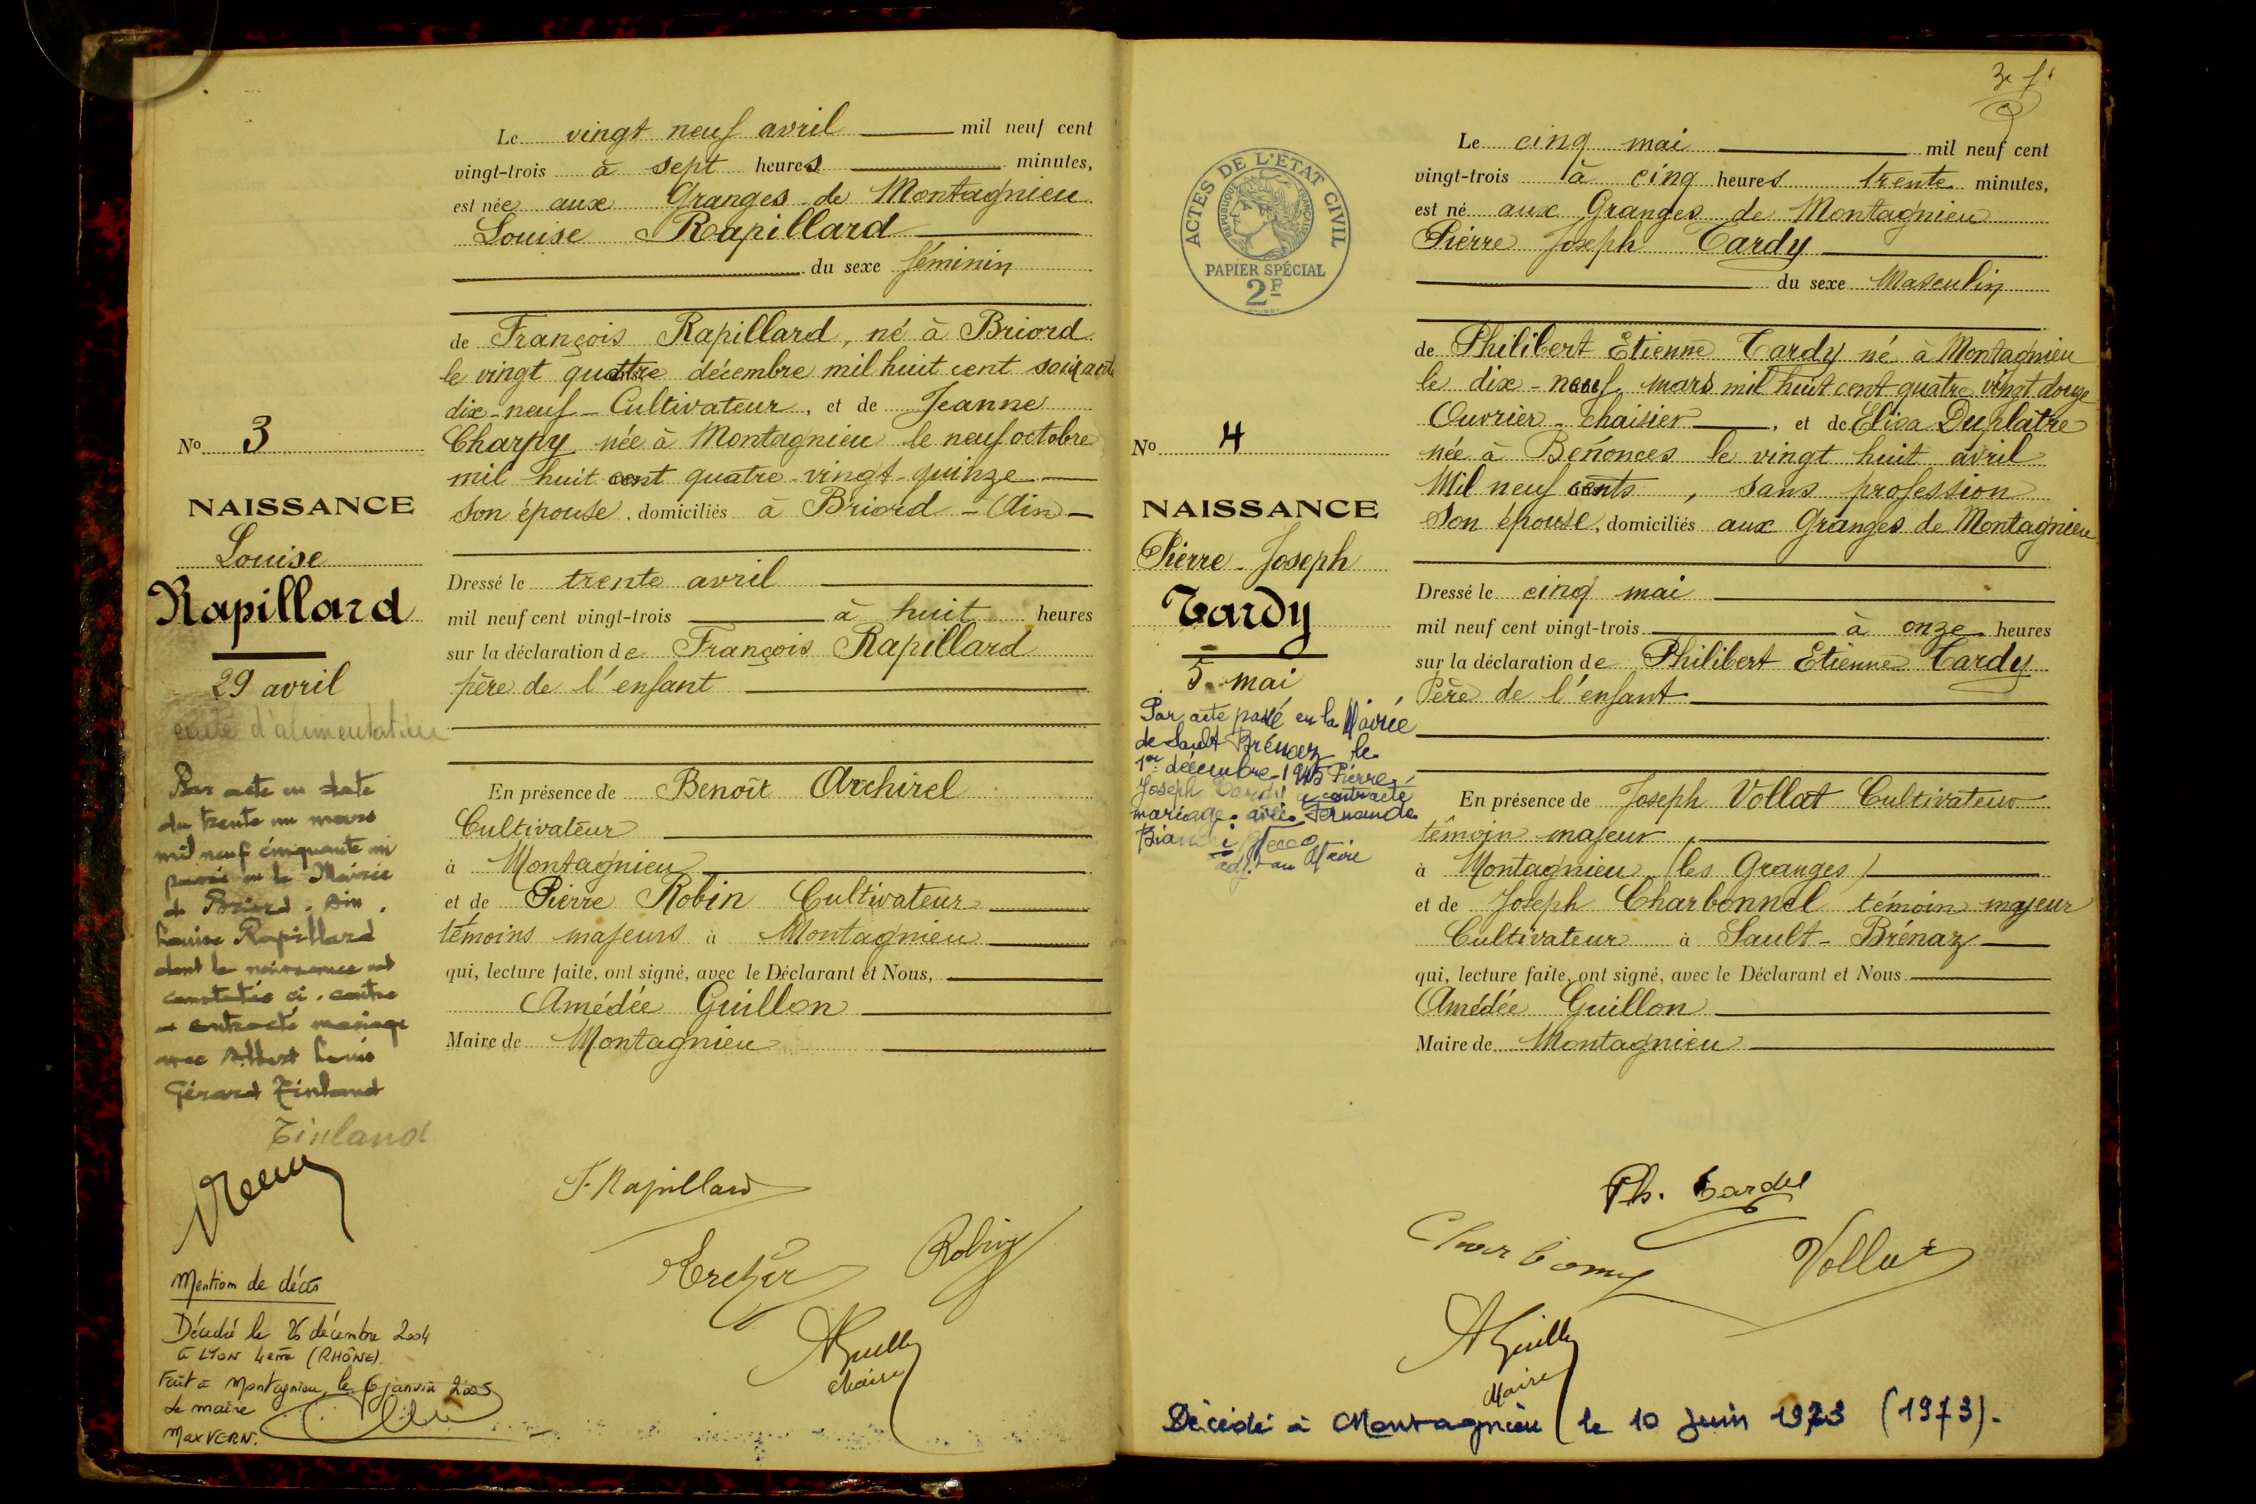 Le vingt neuf avril mil neuf cent
vingt-trois à sept heures minutes,
est née aux Granges de Montagnieu
Louise Rapillard
du sexe féminin
de François Rapillard, né à Briord
le vingt quatre décembre mil huit cent soixante
dix-neuf - Cultivateur, et de Jeanne
Charpy née à Montagnieu le neuf octobre
mil huit cent quatre-vingt-quinze
son épouse, domiciliés à Briord - (Ain) -
Dressé le trente avril
mil neuf cent vingt-trois à huit heures
sur la déclaration de François Rapillard
père de l'enfant
En présence de Benoît Archirel
Cultivateur
à Montagnieu
et de Pierre Robin Cultivateur
témoins majeurs à Montagnieu
qui, lecture faite, ont signé, avec le Déclarant et Nous,
Amédée Guillon
Maire de Montagnieu
F. Rapillard
Robin
AGuillon
Maire
No 3
NAISSANCE
Louise
Rapillard
29 avril
carte d'alimentation
Par acte en date
du trente un mars
mil neuf cinquante un
passé en la Mairie
de Briord - Ain,
Louise Rapillard
dont la naissance est
constatée ci-contre
a contracté mariage
avec Albert Louis
Gérard Tinland
Tinland
Mention de décès
Décédé le 26 décembre 2004
à LYON 4ème (RHÔNE).
Fait à Montagnieu, le 6 janvier 2005
Le maire
Max VERN.
3e f.
ACTES DE L'ETAT CIVIL
REPUBLIQUE FRANÇAISE
PAPIER SPÉCIAL
2F
No 4
NAISSANCE
Pierre-Joseph
Tardy
5 mai
Par acte passé en la Mairie
de Sault Brénaz le
1er décembre 1945 Pierre
Joseph Tardy a contracté
mariage avec Fernande
adj. au Maire
Le cinq mai mil neuf cent
vingt-trois à cinq heures trente minutes,
est né aux Granges de Montagnieu
Pierre Joseph Tardy
du sexe Masculin
de Philibert Etienne Tardy né à Montagnieu
le dix-neuf mars mil huit cent quatre vingt douze
Ouvrier-chaisier, et de Elisa Duplâtre
née à Bénonces le vingt huit avril
Mil neuf cents, sans profession
Son épouse, domiciliés aux Granges de Montagnieu
Dressé le cinq mai
mil neuf cent vingt-trois à onze heures
sur la déclaration de Philibert Etienne Tardy
Père de l'enfant
En présence de Joseph Vollat Cultivateur
témoin majeur,
à Montagnieu (les Granges)
et de Joseph Charbonnel témoin majeur
Cultivateur à Sault-Brénaz
qui, lecture faite, ont signé, avec le Déclarant et Nous
Amédée Guillon
Maire de Montagnieu
Ph. Tardy
Vollat
AGuillon
Maire
Décédé à Montagnieu le 10 Juin 1973 (1973).